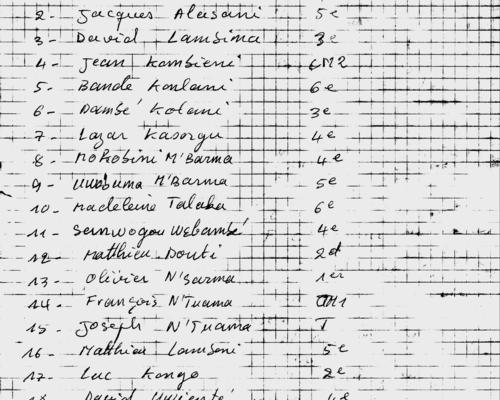 2- Jacques Alasani 5e
3- David Lambima 3e
4- Jean Kombieni CM2
5- Bandé Koulani 6e
6- Dambé Kolani 3e
7- Lazar Kasorgu 4e
8- Mokobini M'Barma 4e
9- M'Barma 5e
10- Madeleine Talaka 6e
11- 4e
12- Matthieu Douti 2d
13- Olivier N'Sarma 1er
14- François N'Tuama
15- Joseph N'Tuama T
16- Matthieu Lamboni 5e
17- Luc Kongo 2e
David